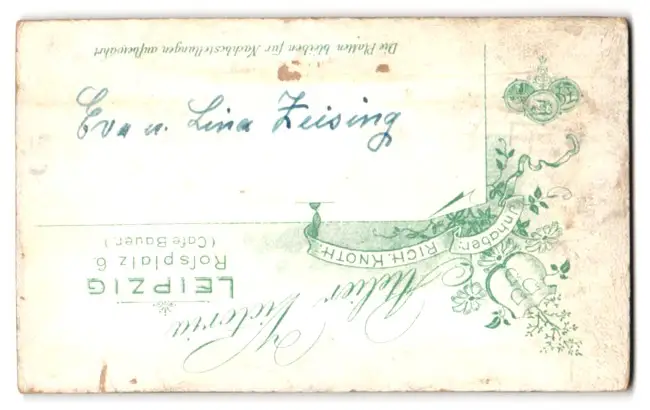 Atelier Victoria
Inhaber:
RICH. KNOTH.
LEIPZIG
Roſsplatz 6.
(Cafe Bauer.)
Eva u. Lina Zeising
Die Platten bleiben für Nachbestellungen aufbewahrt